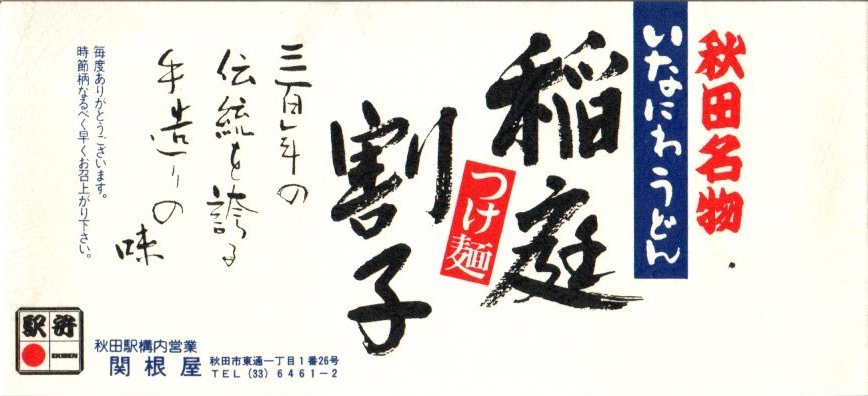 秋田名物
いなにわうどん
稲庭
つけ麺
割子
三百年の
伝統を誇る
手造りの
味
毎度ありがとうございます。
時節柄なるべく早くお召上がり下さい。
駅弁
EKIBEN
秋田駅構内営業
関根屋
秋田市東通一丁目1番26号
TEL (33) 6461-2